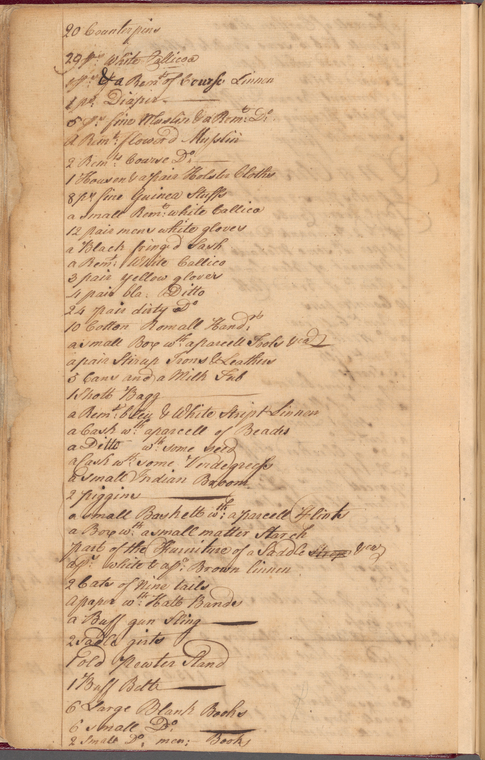 20 Counterpins
29 ps. White Callicoa
1 ps. & a Remt. of Course Linnen
1 ps. Diaper
6 ps. fine Muslin & a Remt. Do.
a Remt. flowerd Muslin
2 Remts. Course Do.
1 Housen & a pair Holster Cloths
8 ps fine Guinea Stuffs
a Small Remt. white Callico
12 pair mens white gloves
a Black fring'd Sash
a Remt. White Callico
3 pair yellow gloves
4 pair bla. Ditto
24 pair dirty Do
10 Cotton Romall Handrs.
a small Box wth. a parcell Tools &ca
a pair Stirup Irons & Leathers
5 Cans and a Milk Tub
1 Shott Bagg
a Remt. Bley & White Stript Linnen
a Cask wth. a parcell of Beads
a Ditto wth. some seed
a Cask wth. some Verdegress
a small Indian Broom
2 piggins
a small Baskett wth. a parcell Flints
a Box wth. a small matter Starch
part of the Furniture of a Saddle &ca
a ps. white & a ps. Brown linnen
2 Cats of Nine tails
a paper wth. Hatt Bands
a Buff gun sling
2 Saddle girts
1 old pewter Stand
1 Buff Belt
6 Large Blank Books
6 small Do.
2 Small Do. mem: Books